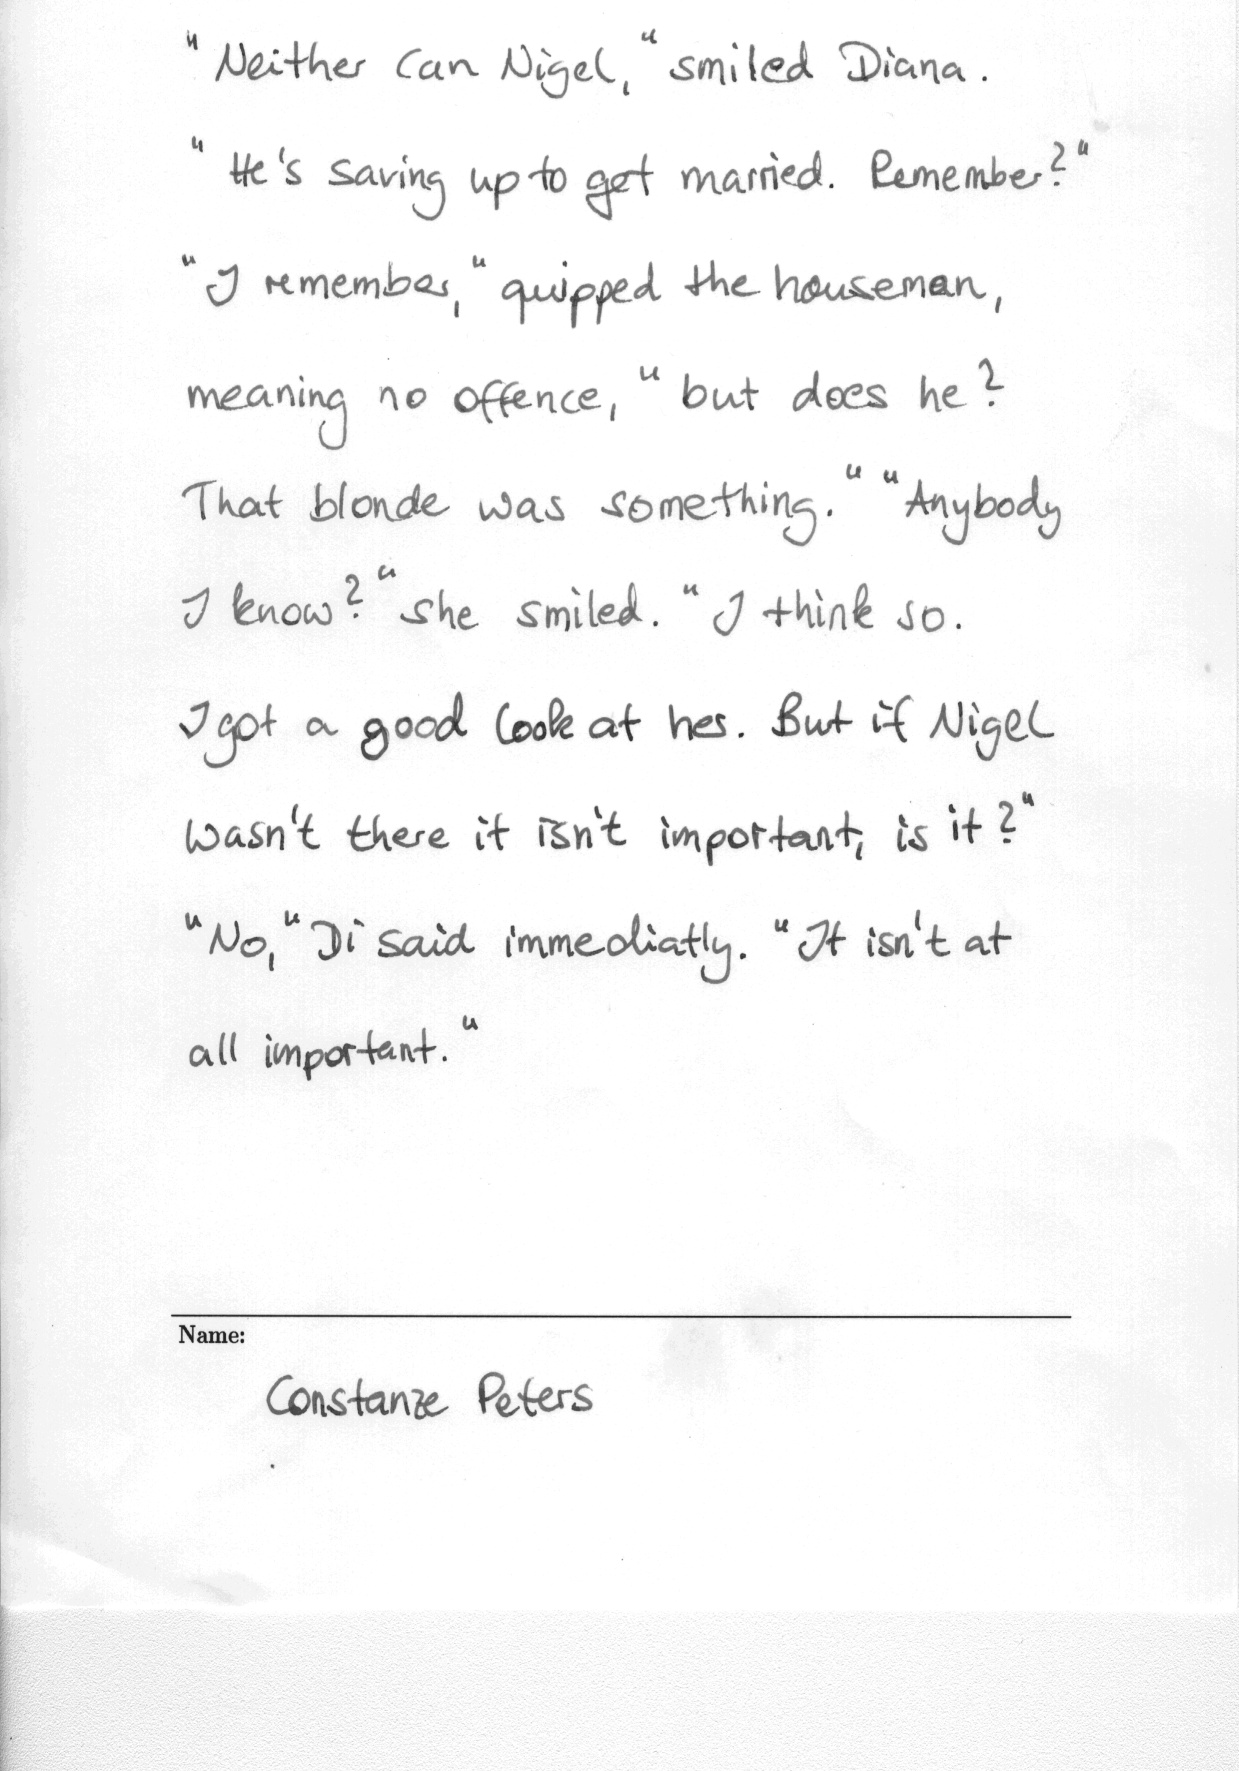 "Neither can Nigel," smiled Diana.
"He's saving up to get married. Remember?"
"I remember," quipped the houseman,
meaning no offence, "but does he?
That blonde was something." "Anybody
I know?" she smiled. "I think so.
I got a good look at her. But if Nigel
wasn't there it isn't important, is it?"
"No," Di said immediatly. "It isn't at
all important."
Name:
Constanze Peters